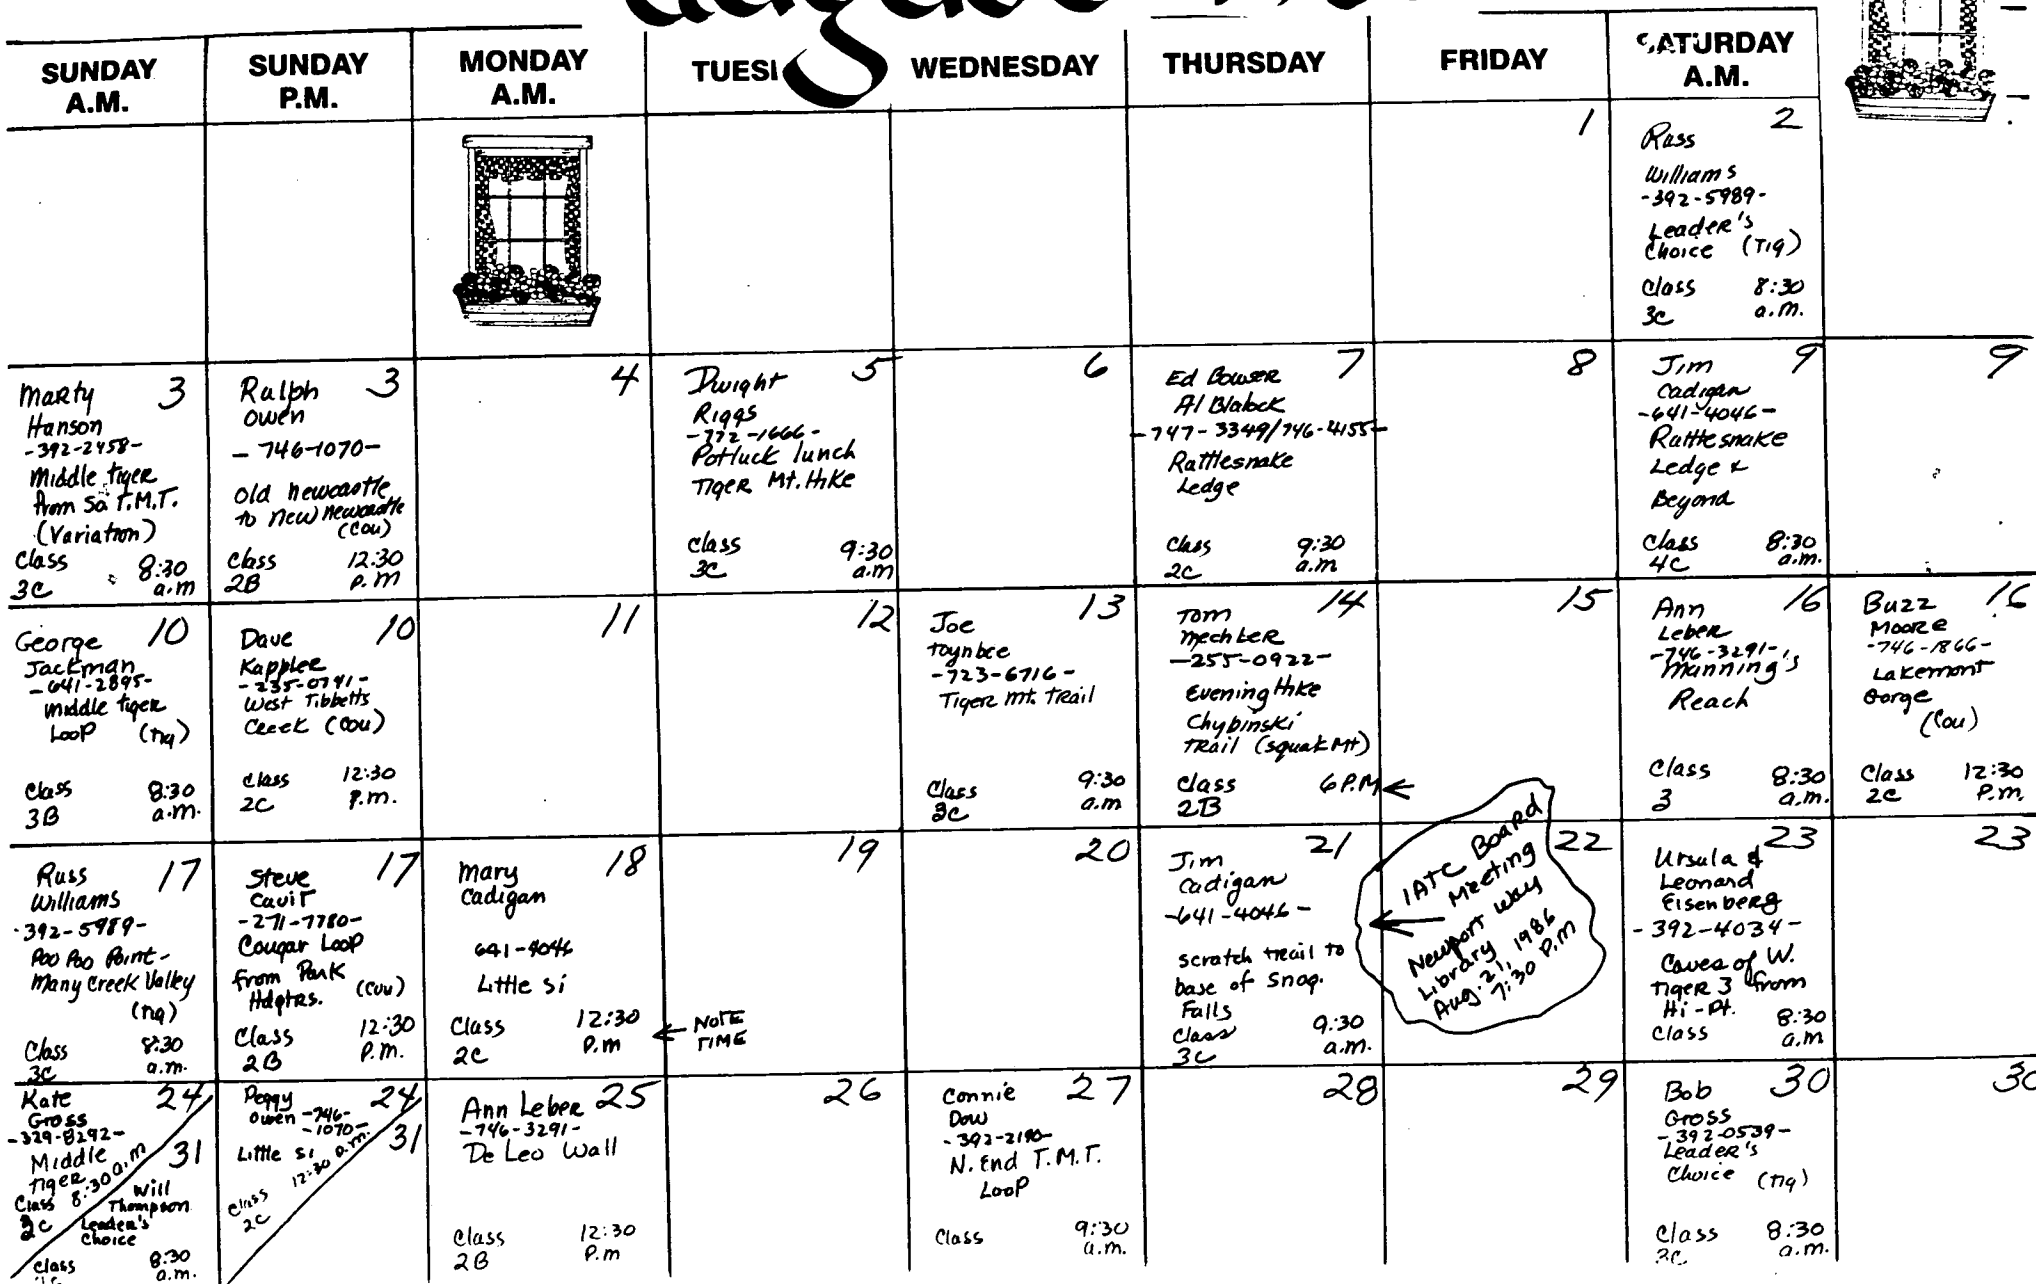 August
SUNDAY
A.M.
SUNDAY
P.M.
MONDAY
A.M.
TUESI
WEDNESDAY
THURSDAY
FRIDAY
SATURDAY
A.M.
1
2
Russ
Williams
-392-5989-
Leader's
Choice (Tig)
Class 8:30
3C a.m.
Marty 3
Hanson
-392-2458-
Middle Tiger
from So. T.M.T.
(Variation)
Class 8:30
3C a.m
Ralph 3
Owen
- 746-1070-
Old Newcastle
to New Newcastle
(Cou)
Class 12:30
2B P.m
4
Dwight 5
Riggs
-772-1666-
Potluck lunch
Tiger Mt. Hike
Class 9:30
3C a.m
6
7
Ed Bowser
Al Blalock
-747-3349/746-4155-
Rattlesnake
Ledge
Class 9:30
2C a.m
8
Jim 9
Cadigan
-641-4046-
Rattlesnake
Ledge &
Beyond
Class 8:30
4C a.m.
9
George 10
Jackman
-641-2895-
Middle Tiger
Loop (Tig)
Class 8:30
3B a.m.
Dave 10
Kappler
-235-0741-
West Tibbetts
Creek (Cou)
Class 12:30
2C P.m.
11
12
Joe 13
Toynbee
-723-6716-
Tiger Mt. Trail
Class 9:30
3C a.m
Tom 14
Mechler
-255-0922-
Evening Hike
Chybinski
Trail (Squak Mt)
Class 6 P.M ←
2B
15
Ann 16
Leber
-746-3291-
Manning's
Reach
Class 8:30
3 a.m.
Buzz 16
Moore
-746-1866-
Lakemont
Gorge
(Cou)
Class 12:30
2C P.m.
Russ 17
Williams
-392-5989-
Poo Poo Point-
Many Creek Valley
(Tig)
Class 8:30
3C a.m.
Steve 17
Cavit
-271-7780-
Cougar Loop
from Park
Hdqtrs. (Cou)
Class 12:30
2B P.m.
Mary 18
Cadigan
641-4046
Little Si
Class 12:30
2C P.m
← NOTE
TIME
19
20
Jim 21
Cadigan
-641-4046-
scratch trail to
base of Snoq.
Falls
Class 9:30
3C a.m.
22
IATC Board
Meeting
Newport Way
Library
Aug. 21, 1986
7:30 P.M
Ursula & 23
Leonard
Eisenberg
-392-4034-
Caves of W.
Tiger 3 from
Hi-Pt.
Class 8:30
a.m
23
Kate 24
Gross
-329-8292-
Middle
Tiger
Class 8:30 a.m
2C
31
Will
Thompson
Leader's
Choice
Class 8:30
a.m.
Peggy 24
Owen -746-
-1070-
Little Si
Class 12:30 P.m.
2C
31
Ann Leber 25
-746-3291-
De Leo Wall
Class 12:30
2B P.m
26
Connie 27
Dow
-392-2190-
N. End T.M.T.
Loop
Class 9:30
a.m.
28
29
Bob 30
Gross
-392-0539-
Leader's
Choice (Tig)
Class 8:30
3C a.m.
30